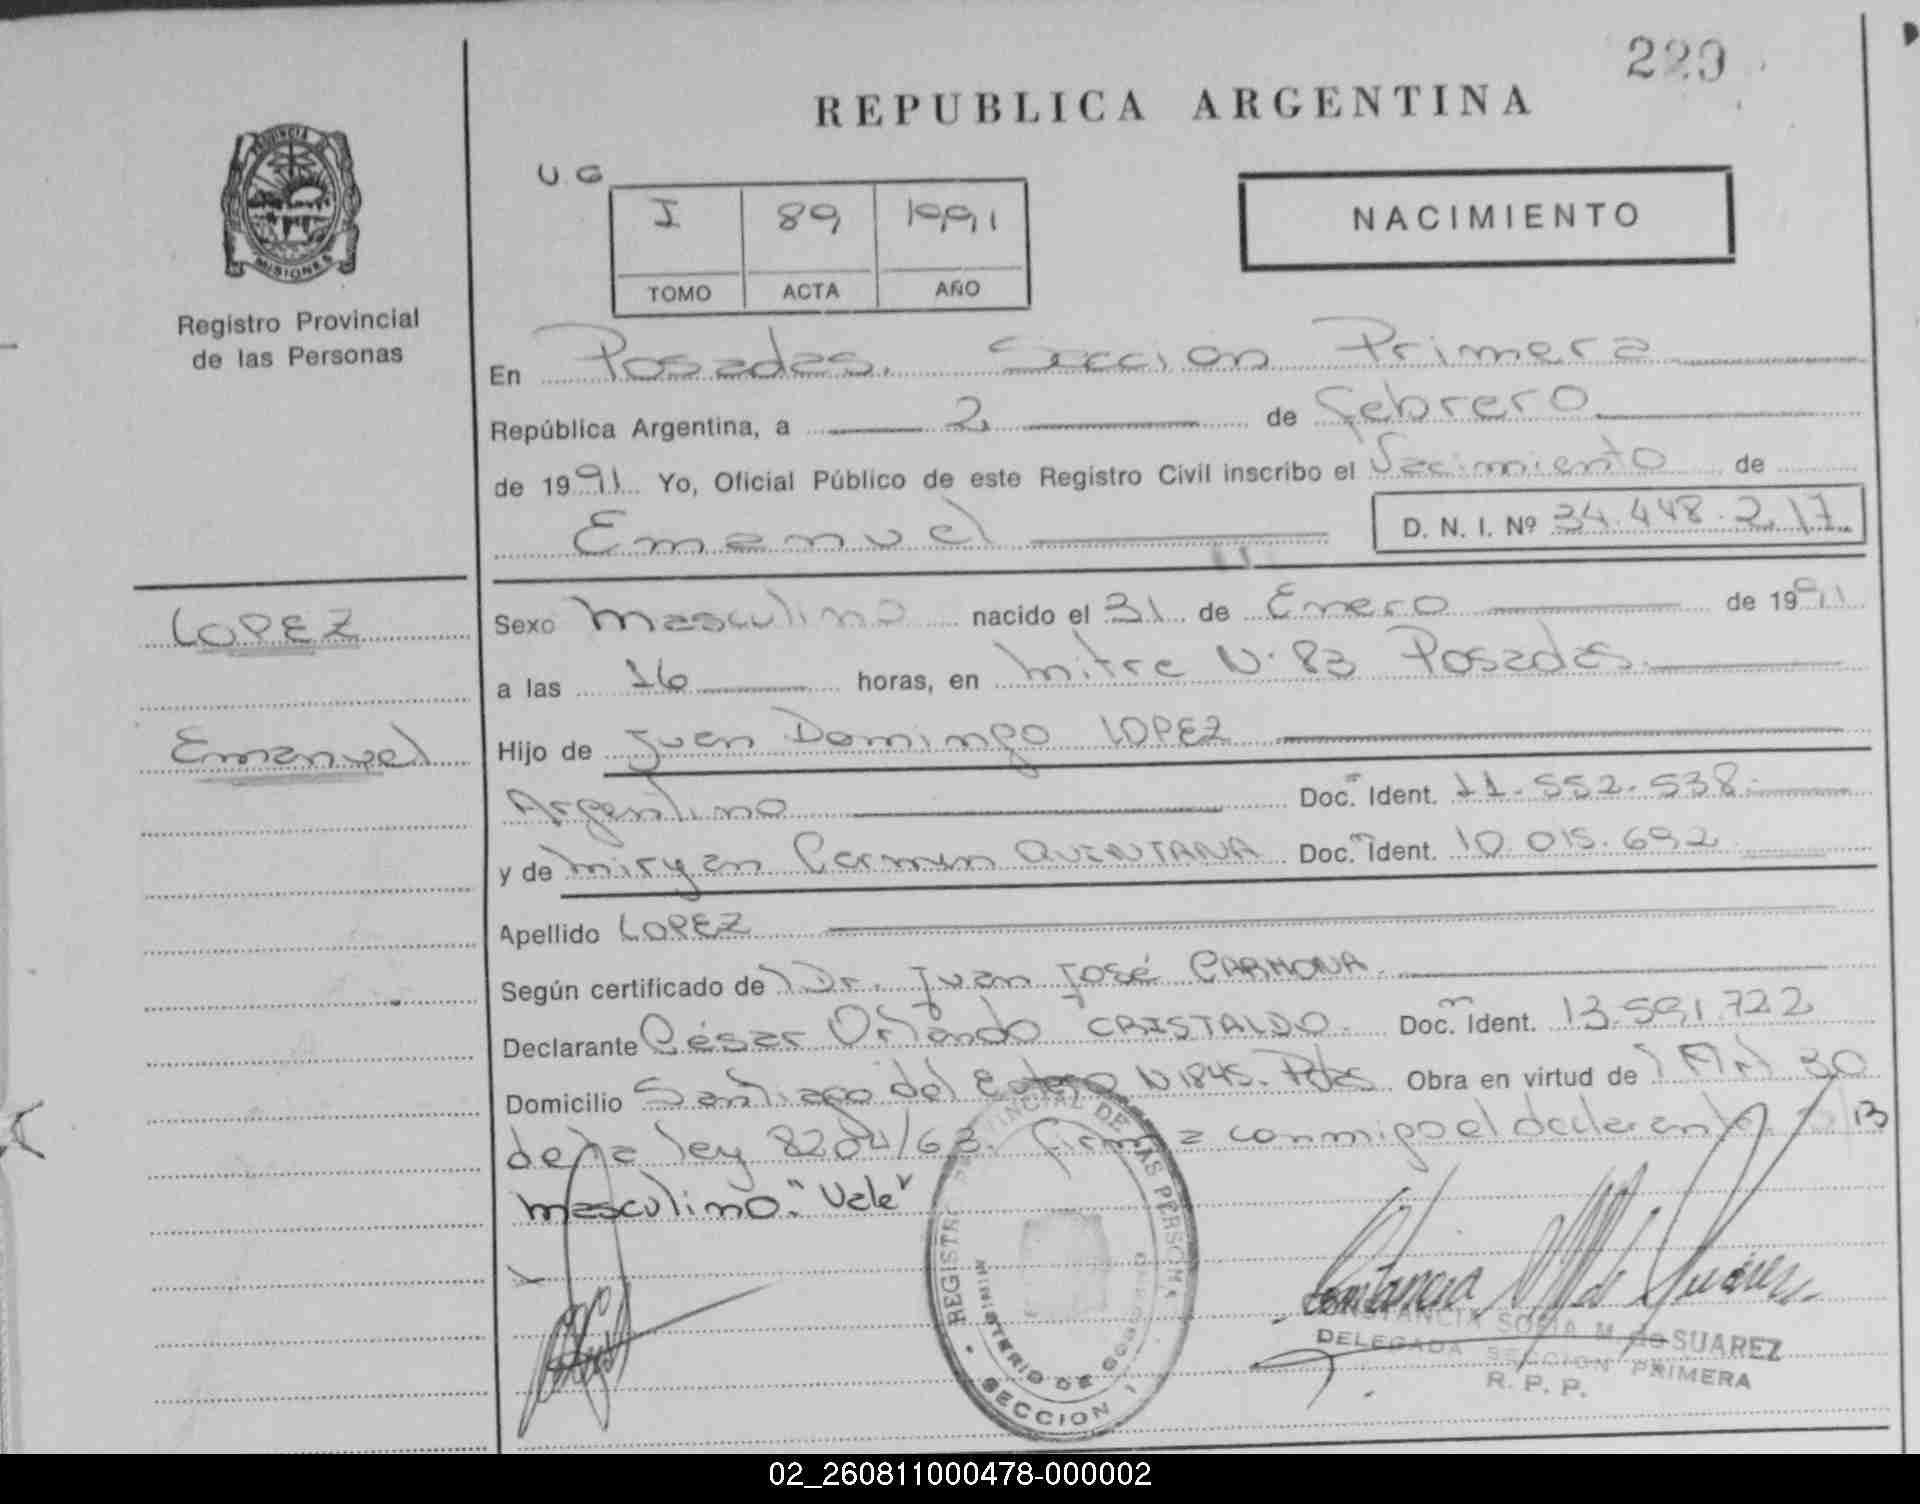 229
REPUBLICA ARGENTINA
PROVINCIA
MISIONES
Registro Provincial
de las Personas
U.G
I 89 1991
TOMO ACTA AÑO
NACIMIENTO
En Posadas. Seccion Primera
República Argentina, a 2 de febrero
de 1991 Yo, Oficial Público de este Registro Civil inscribo el Nacimiento de
Emanuel D. N. I. Nº 34.448.217
LOPEZ
Emanuel
Sexo masculino nacido el 31 de Enero de 1991
a las 16 horas, en mitre N. 83 Posadas.
Hijo de Juan Domingo LOPEZ
Argentino Doc. Ident. 11.552.538
y de miryan Carmen QUINTANA Doc. Ident. 10.015.692
Apellido LOPEZ
Según certificado de Dr. Juan José CARMONA
Declarante César Orlando CRISTALDO. Doc. Ident. 13.591.722
Domicilio Santiago del Estero N 1845. Pdas Obra en virtud de Art 30
de la ley 8204/63. firma conmigo el declarante
masculino. "Vale"
REGISTRO PROVINCIAL DE LAS PERSONAS
MINISTERIO DE GOBIERNO
SECCION 1
Constancia M de Suárez
CONSTANCIA SOFIA M. de SUAREZ
DELEGADA SECCION PRIMERA
R. P. P.
02_260811000478-000002